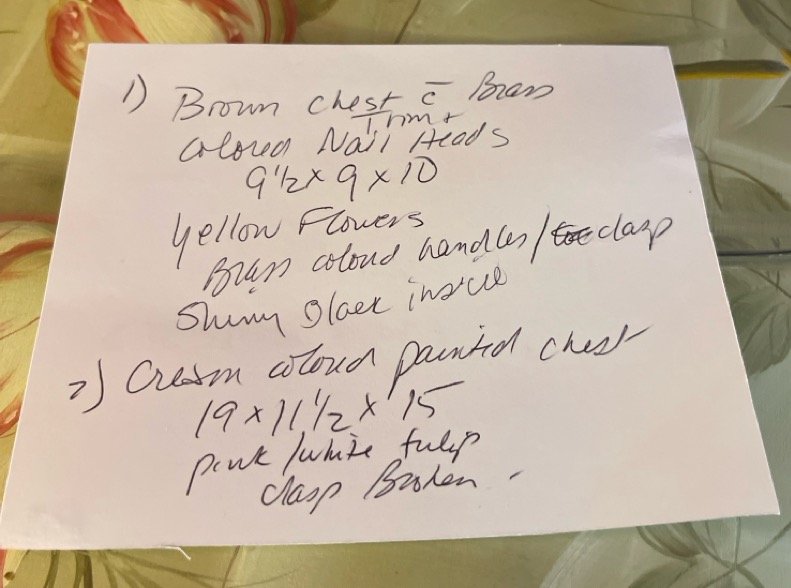 1) Brown chest c̄ Brass
Trim +
colored Nail Heads
9 1/2 x 9 x 10
Yellow Flowers
Brass colored handles / clasp
Shiny Black inside
2) Cream colored painted chest
19 x 11 1/2 x 15
pink / white tulip
clasp Broken -